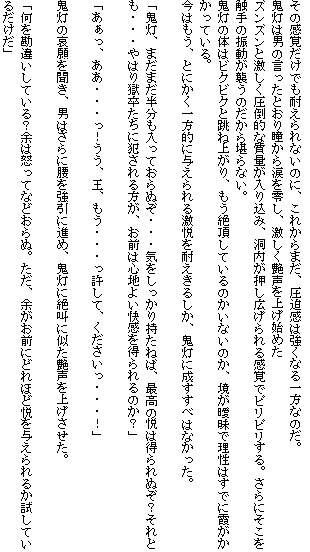 その感覚だけでも耐えられないのに、これからまだ、圧迫感は強くなる一方なのだ。
鬼灯は男の言ったとおり瞳から涙を零し、激しく艶声を上げ始めた
ズンズンと激しく圧倒的な質量が入り込み、洞内が押し広げられる感覚でビリビリする。さらにそこを
触手の振動が襲うのだから堪らない。
鬼灯の体はビクビクと跳ね上がり、もう絶頂しているのかいないのか、境が曖昧で理性はすでに霞がか
かっている。
今はもう、とにかく一方的に与えられる激悦を耐えきるしか、鬼灯に成すすべはなかった。
「鬼灯、まだまだ半分も入っておらぬぞ・・・気をしっかり持たねば、最高の悦は得られぬぞ？それと
も・・・やはり獄卒たちに犯される方が、お前は心地よい快感を得られるのか？」
「あぁっ、ああ・・・っ！うう、王、もう・・・っ許して、くださいっ・・・！」
鬼灯の哀願を聞き、男はさらに腰を強引に進め、鬼灯に絶叫に似た艶声を上げさせた。
「何を勘違いしている？余は怒ってなどおらぬ。ただ、余がお前にどれほど悦を与えられるか試してい
るだけだ」